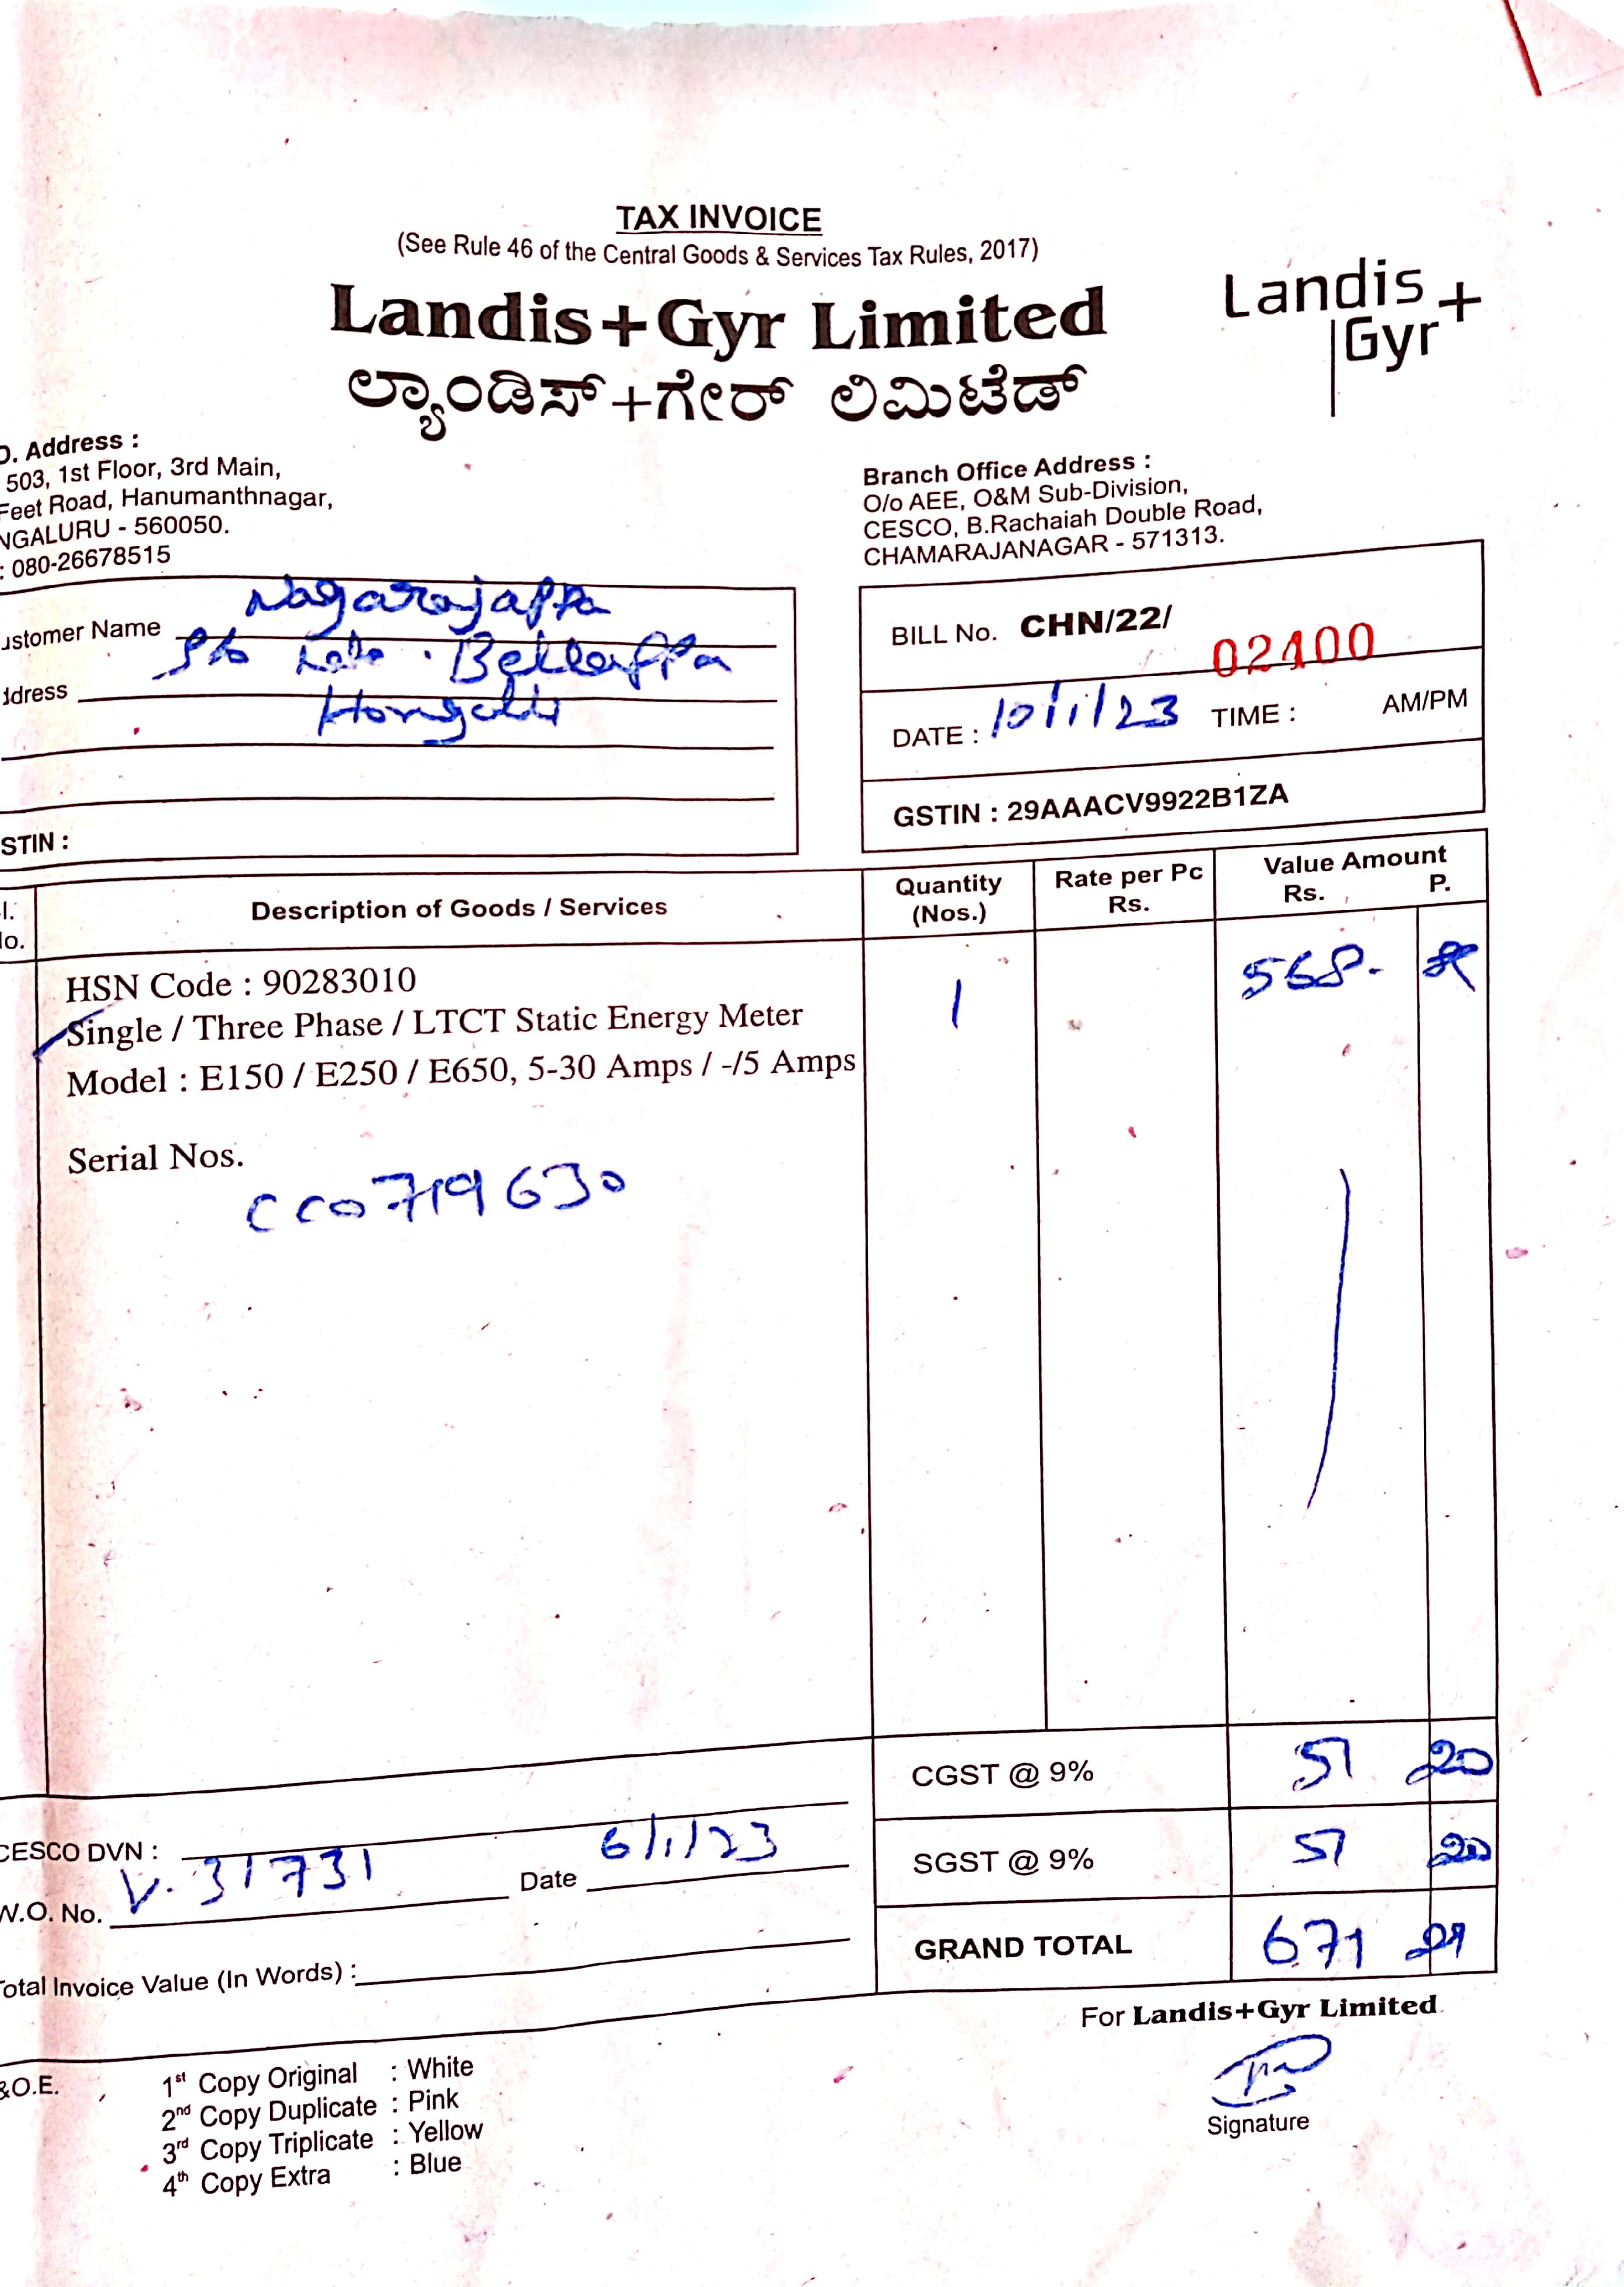 TAX INVOICE
(See Rule 46 of the Central Goods & Services Tax Rules, 2017)
Landis+Gyr Limited
ಲ್ಯಾಂಡಿಸ್+ಗೇರ್ ಲಿಮಿಟೆಡ್
Landis+
Gyr
O. Address :
503, 1st Floor, 3rd Main,
Feet Road, Hanumanthnagar,
NGALURU - 560050.
: 080-26678515
Branch Office Address :
O/o AEE, O&M Sub-Division,
CESCO, B.Rachaiah Double Road,
CHAMARAJANAGAR - 571313.
ustomer Name Nagarajappa
S/o Late . Bellappa
ddress
STIN :
BILL No. CHN/22/ 02400
DATE : 10/1/23 TIME : AM/PM
GSTIN : 29AAACV9922B1ZA
l. No. Description of Goods / Services Quantity (Nos.) Rate per Pc Rs. Value Amount Rs. P.
HSN Code : 90283010 1 568-
Single / Three Phase / LTCT Static Energy Meter
Model : E150 / E250 / E650, 5-30 Amps / -/5 Amps
Serial Nos.
CC0719630
CGST @ 9% 51 20
SGST @ 9% 51 20
GRAND TOTAL 671
CESCO DVN :
W.O. No. V. 31731 Date 6/1/23
otal Invoice Value (In Words) :
For Landis+Gyr Limited
Signature
&O.E.
1st Copy Original : White
2nd Copy Duplicate : Pink
3rd Copy Triplicate : Yellow
4th Copy Extra : Blue